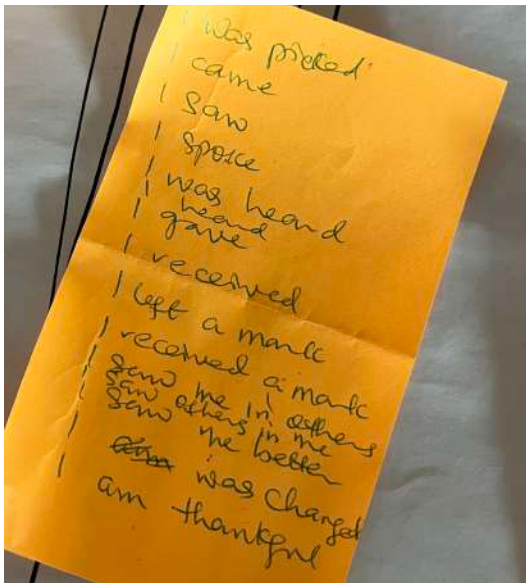 I was picked
I came
I saw
I spoke
I was heard
I heard
I gave
I received
I left a mark
I received a mark
I saw me in others
I saw others in me
I saw me better
I was changed
I am thankful